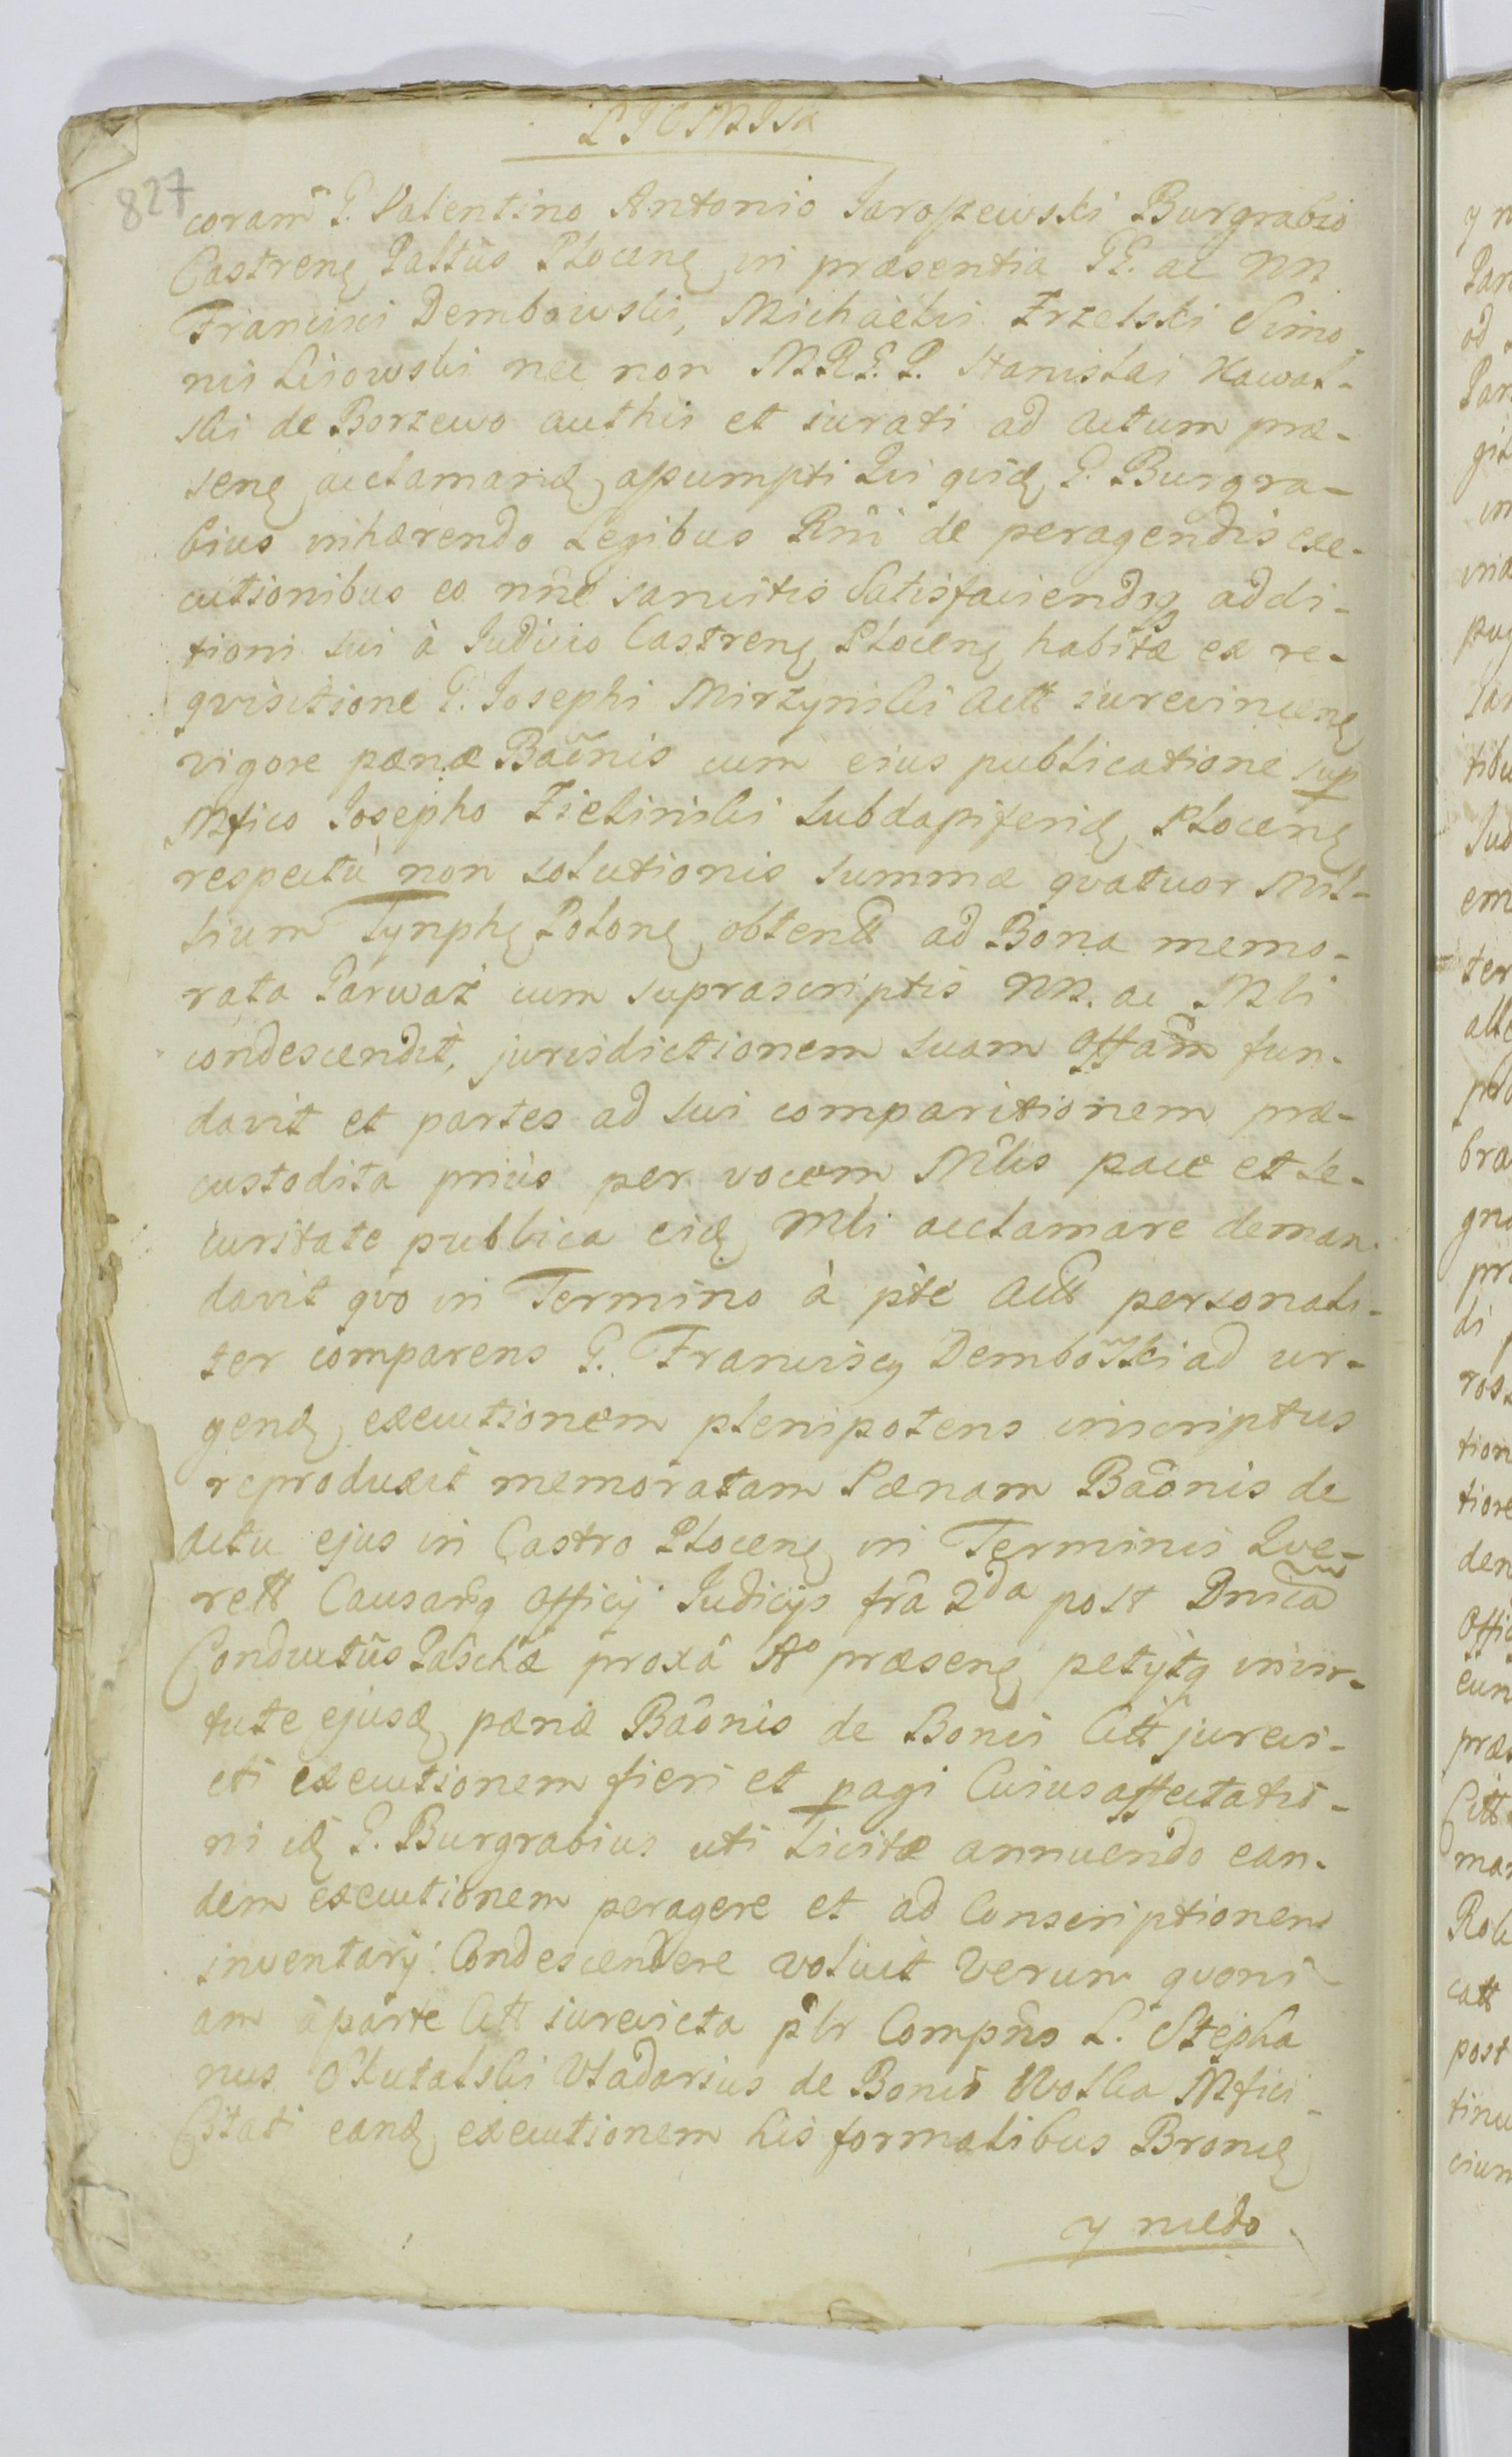 827
coram G. Valentino Antonio Jaroszewski Burgrabio
Castrenς Palttûs Plocenς in præsentia GG. ac NN
Francisci Dembowski, Michaëlis Trzelski Simo-
nis Lisowski nec non MRGP. Stanislai Kawal-
ski de Borzewo authis et iurati ad actum præ-
senς acclamandς assumpti Qui quidς G. Burgra-
bius inhærendo Legibus Rñi de peragendis exe-
cutionibus eo nñe sancitis Satisfaciendoq addi-
tioni sui à Judicio Castrenς Plocenς habitæ ex re-
qvisitione G. Josephi Mirzynski Actt iurevincenς
vigore pænæ Baõnis cum eius publicatione sup
Mfico Josepho Zielinski Subdapiferidς Plocenς
respectu non solutionis Summæ qvatuor Mil-
lium Tynphς Polonς obtentt ad Bona memo-
rata Parważ cum suprascriptis NN. ac Mli
condescendit, jurisdictionem suam Offam fun-
davit et partes ad sui comparitionem præ-
custodita priùs per vocem Mlis pace et se-
curitate publica eidς Mli acclamare deman-
davit qvo in Termino à pte Actt personali-
ter comparens G. Franciscς Dembowski ad ur-
gendς executionem plenipotens inscriptus
reproduxit memoratam Pænam Baõnis de
actu ejus in Castro Plocenς in Terminis Qve-
rell Causarq Officij Judicijs frâ 2da post Dnicam
Conductûs Paschæ proxâ Aº præsenς petijtq invir-
tute ejusdς pænæ Baõnis de Bonis Citt jurevi-
cti executionem fieri et pagi Cuius affectatio-
ni idς G. Burgrabius uti licitæ annuendo ean-
dem executionem peragere et ad Conscriptionem
inventarij Condescendere voluit Verum qvoni-
am à parte Citt iurevicta plr Compñs L. Stepha
nus Okutalski Vladarius de Bonis Wolka Mfici
Citati eandς executionem his formalibus Broniς
y niedo